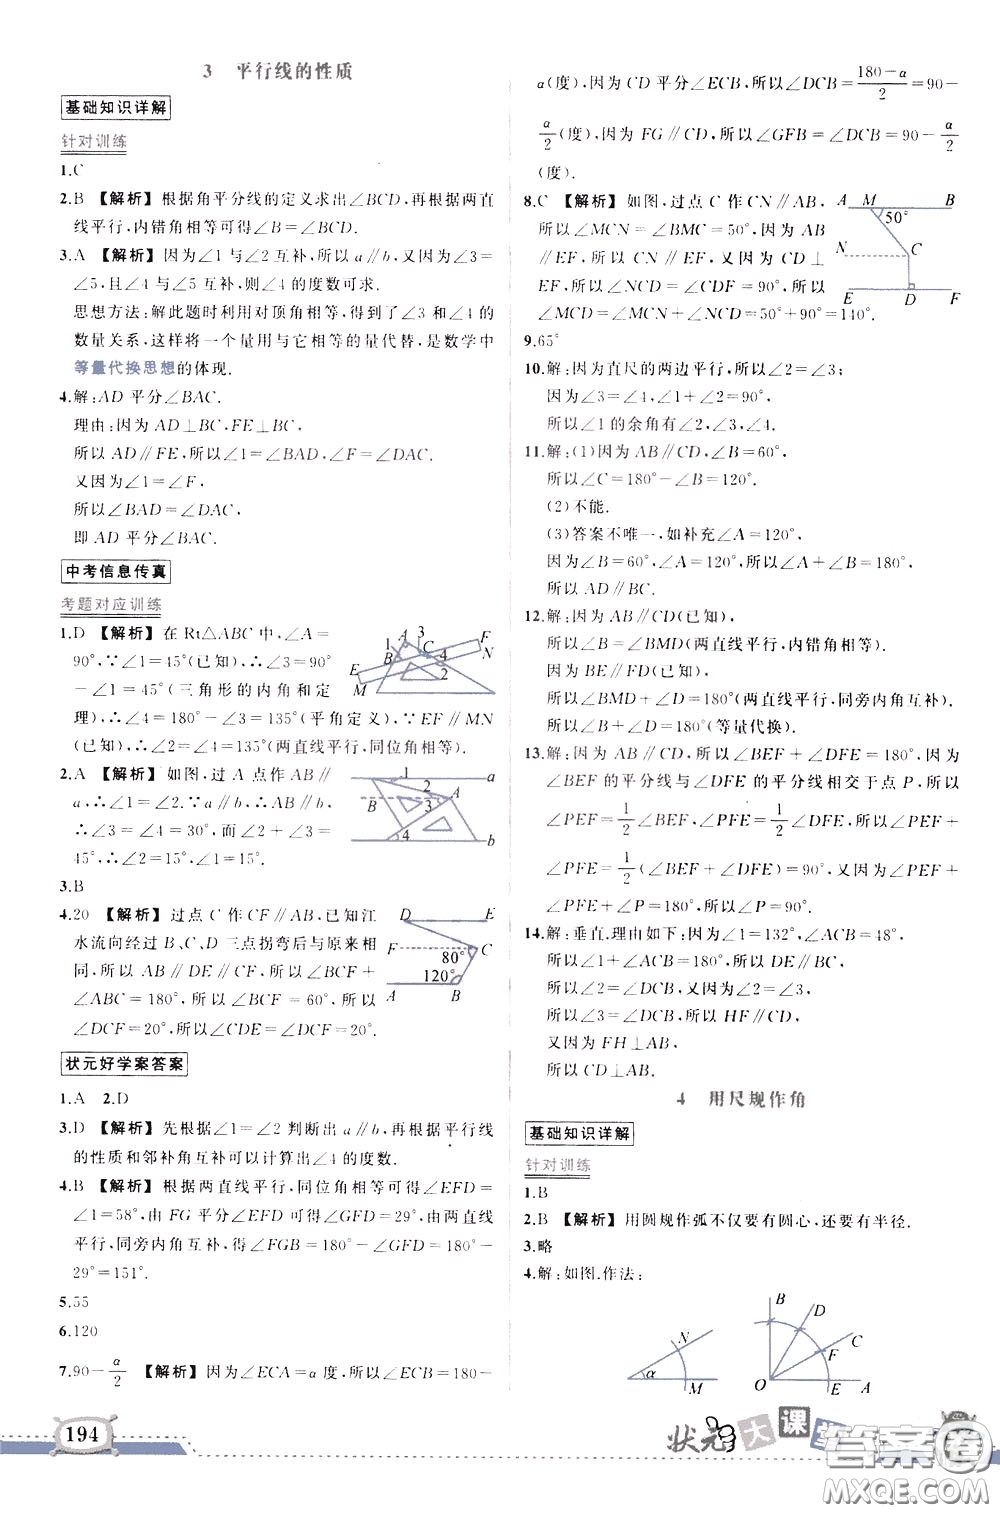 3 平行线的性质
基础知识详解
针对训练
1.C
2.B 【解析】根据角平分线的定义求出∠BCD,再根据两直
线平行,内错角相等可得∠B=∠BCD.
3.A 【解析】因为∠1与∠2互补,所以a∥b,又因为∠3=
∠5,且∠4与∠5互补,则∠4的度数可求.
思想方法:解此题时利用对顶角相等,得到了∠3和∠4的
数量关系,这样将一个量用与它相等的量代替,是数学中
等量代换思想的体现.
4.解:AD平分∠BAC.
理由:因为AD⊥BC,FE⊥BC,
所以AD∥FE,所以∠1=∠BAD,∠F=∠DAC.
又因为∠1=∠F,
所以∠BAD=∠DAC,
即AD平分∠BAC.
中考信息传真
考题对应训练
1.D 【解析】在Rt△ABC中,∠A=
90°,∵∠1=45°(已知),∴∠3=90°
-∠1=45°(三角形的内角和定
理),∴∠4=180°-∠3=135°(平角定义),∵EF∥MN
(已知),∴∠2=∠4=135°(两直线平行,同位角相等).
A 3 F
1 C 4 N
B
E 2
M
2.A 【解析】如图,过A点作AB∥
a,∴∠1=∠2.∵a∥b,∴AB∥b,
∴∠3=∠4=30°,而∠2+∠3=
45°,∴∠2=15°,∴∠1=15°.
1 a
2
B 3 A
4 b
3.B
4.20 【解析】过点C作CF∥AB,已知江
水流向经过B、C、D三点拐弯后与原来相
同,所以AB∥DE∥CF,所以∠BCF+
∠ABC=180°,所以∠BCF=60°,所以
∠DCF=20°,所以∠CDE=∠DCF=20°.
D E
F C
80°
120°
A B
状元好学案答案
1.A 2.D
3.D 【解析】先根据∠1=∠2判断出a∥b,再根据平行线
的性质和邻补角互补可以计算出∠4的度数.
4.B 【解析】根据两直线平行,同位角相等可得∠EFD=
∠1=58°,由FG平分∠EFD可得∠GFD=29°,由两直线
平行,同旁内角互补,得∠FGB=180°-∠GFD=180°-
29°=151°.
5.55
6.120
7.90-α/2 【解析】因为∠ECA=α度,所以∠ECB=180-
194
α(度),因为CD平分∠ECB,所以∠DCB=(180-α)/2=90-
α/2(度),因为FG∥CD,所以∠GFB=∠DCB=90-α/2
(度).
8.C 【解析】如图,过点C作CN∥AB,
所以∠MCN=∠BMC=50°,因为AB
∥EF,所以CN∥EF,又因为CD⊥
EF,所以∠NCD=∠CDF=90°,所以
∠MCD=∠MCN+∠NCD=50°+90°=140°.
A M B
50°
N C
E D F
9.65°
10.解:因为直尺的两边平行,所以∠2=∠3;
因为∠3=∠4,∠1+∠2=90°,
所以∠1的余角有∠2,∠3,∠4.
11.解:(1)因为AB∥CD,∠B=60°,
所以∠C=180°-∠B=120°.
(2)不能.
(3)答案不唯一,如补充∠A=120°,
因为∠B=60°,∠A=120°,所以∠A+∠B=180°,
所以AD∥BC.
12.解:因为AB∥CD(已知),
所以∠B=∠BMD(两直线平行,内错角相等).
因为BE∥FD(已知),
所以∠BMD+∠D=180°(两直线平行,同旁内角互补).
所以∠B+∠D=180°(等量代换).
13.解:因为AB∥CD,所以∠BEF+∠DFE=180°,因为
∠BEF的平分线与∠DFE的平分线相交于点P,所以
∠PEF=1/2∠BEF,∠PFE=1/2∠DFE,所以∠PEF+
∠PFE=1/2(∠BEF+∠DFE)=90°,又因为∠PEF+
∠PFE+∠P=180°,所以∠P=90°.
14.解:垂直.理由如下:因为∠1=132°,∠ACB=48°,
所以∠1+∠ACB=180°,所以DE∥BC,
所以∠2=∠DCB,又因为∠2=∠3,
所以∠3=∠DCB,所以HF∥CD,
又因为FH⊥AB,
所以CD⊥AB.
4 用尺规作角
基础知识详解
针对训练
1.B
2.B 【解析】用圆规作弧不仅要有圆心,还要有半径.
3.略
4.解:如图.作法:
N
α
M
B D
C
F
O E A
状元大课堂
答案圈
MXQE.COM